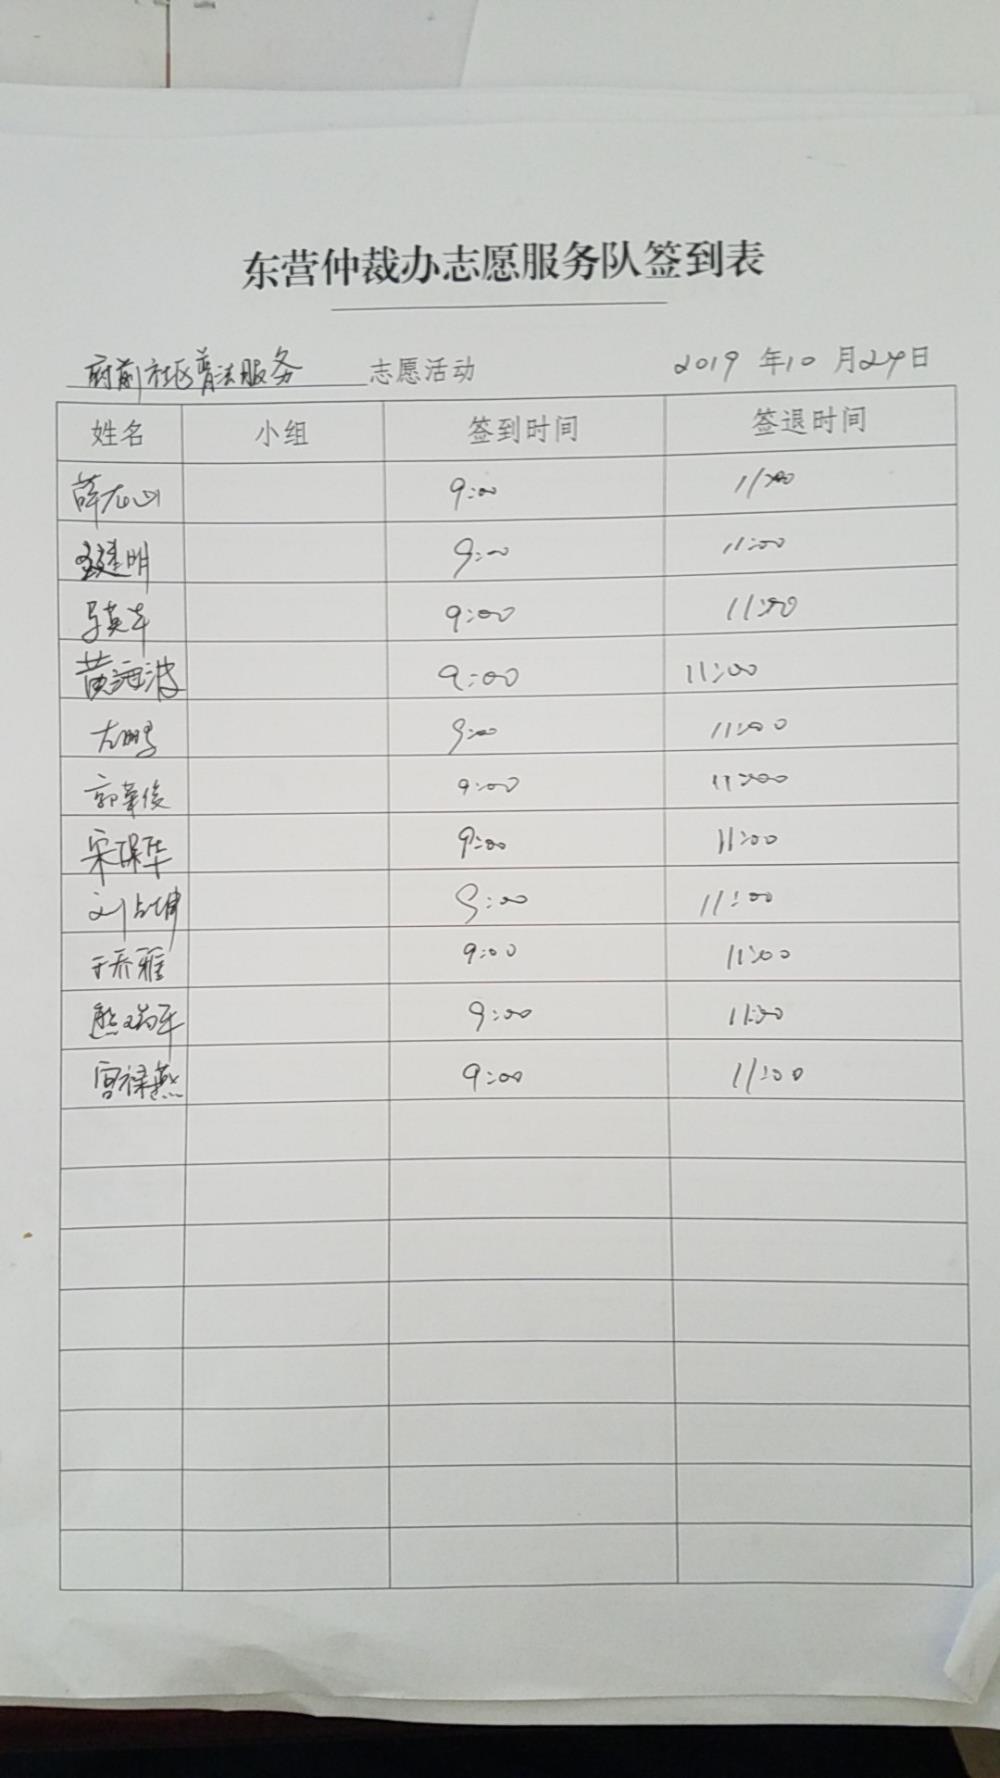 东营仲裁办志愿服务队签到表
府前社区普法服务 志愿活动 2019 年 10 月 24 日
姓名 小组 签到时间 签退时间
薛 山 9:00 11:00
建明 9:00 11:00
英华 9:00 11:00
黄海波 9:00 11:00
左鹏 9:00 11:00
郭华俊 9:00 11:00
宋保华 9:00 11:00
刘占坤 9:00 11:00
于乔雅 9:00 11:00
熊瑞军 9:00 11:00
宫禄燕 9:00 11:00